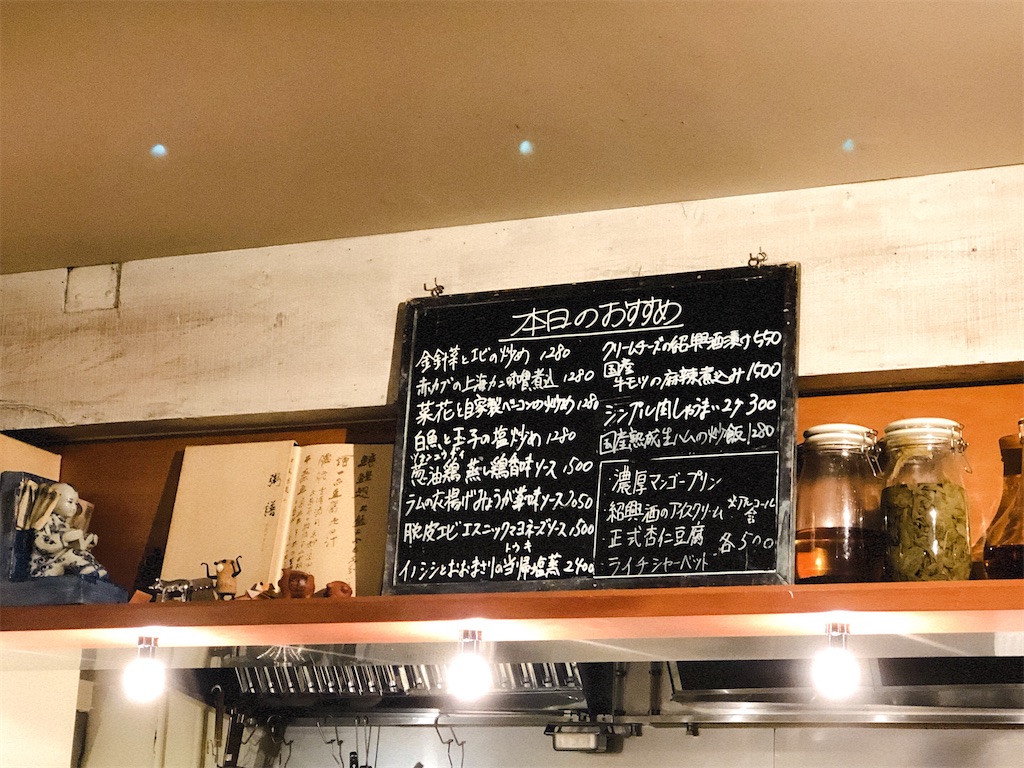 本日のおすすめ
金針菜とエビの炒め 1280
赤カブの上海カニ味噌煮込 1280
菜花と自家製ベーコンの炒め 1280
白魚と玉子の塩炒め 1280
葱油鶏 蒸し鶏香味ソース 1500
ラムの衣揚げみょうが薬味ソース
脱皮エビエスニックマヨネーズソース 1500
トウキ
イノシシとの当帰塩蒸 2400
クリームチーズの紹興酒漬け 550
国産
牛モツの麻辣煮込み 1500
シンプル肉しゅうまい 2ケ 300
国産熟成生ハムの炒飯 1280
濃厚マンゴープリン
紹興酒のアイスクリーム ※アルコール含
正式杏仁豆腐 各500
ライチシャーベット